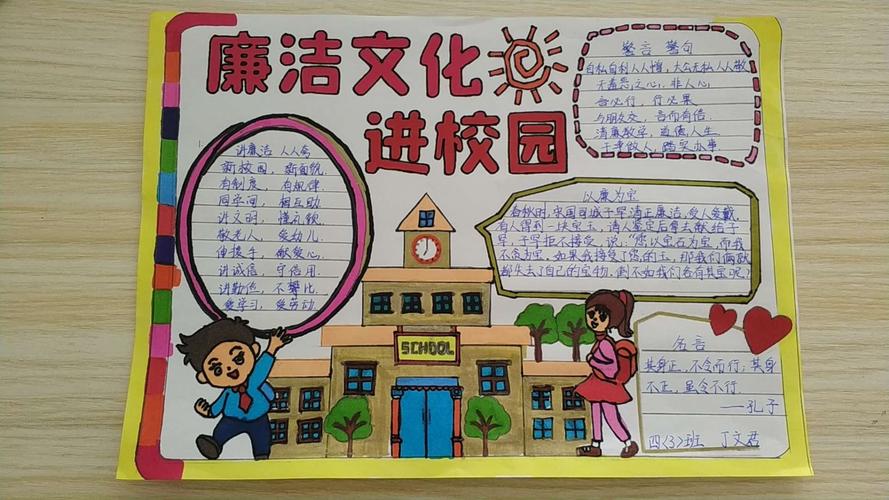 廉洁文化
进校园
警言 警句
自私自利人人憎，大公无私人人敬
无羞恶之心，非人心
言必行，行必果
与朋友交，言而有信
清廉教学，道德人生
干净做人，踏实办事
讲廉洁 人人夸
新校园，新面貌
有制度，有规律
同学间，相互助
讲文明，懂礼貌
敬老人，爱幼儿
伸援手，献爱心
讲诚信 守信用
讲勤俭，不攀比
爱学习，爱劳动
以廉为宝
春秋时，宋国司城子罕清正廉洁，受人爱戴
有人得到一块宝玉，请人鉴定后拿去献给子
罕，子罕拒不接受，说："您以宝石为宝，而我
不贪为宝，如果我接受了您的玉，那我们俩就
都失去了自己的宝物，倒不如我们各有其宝呢？
SCHOOL
名言
其身正，不令而行；其身
不正，虽令不行
——孔子
四(3)班 丁文君